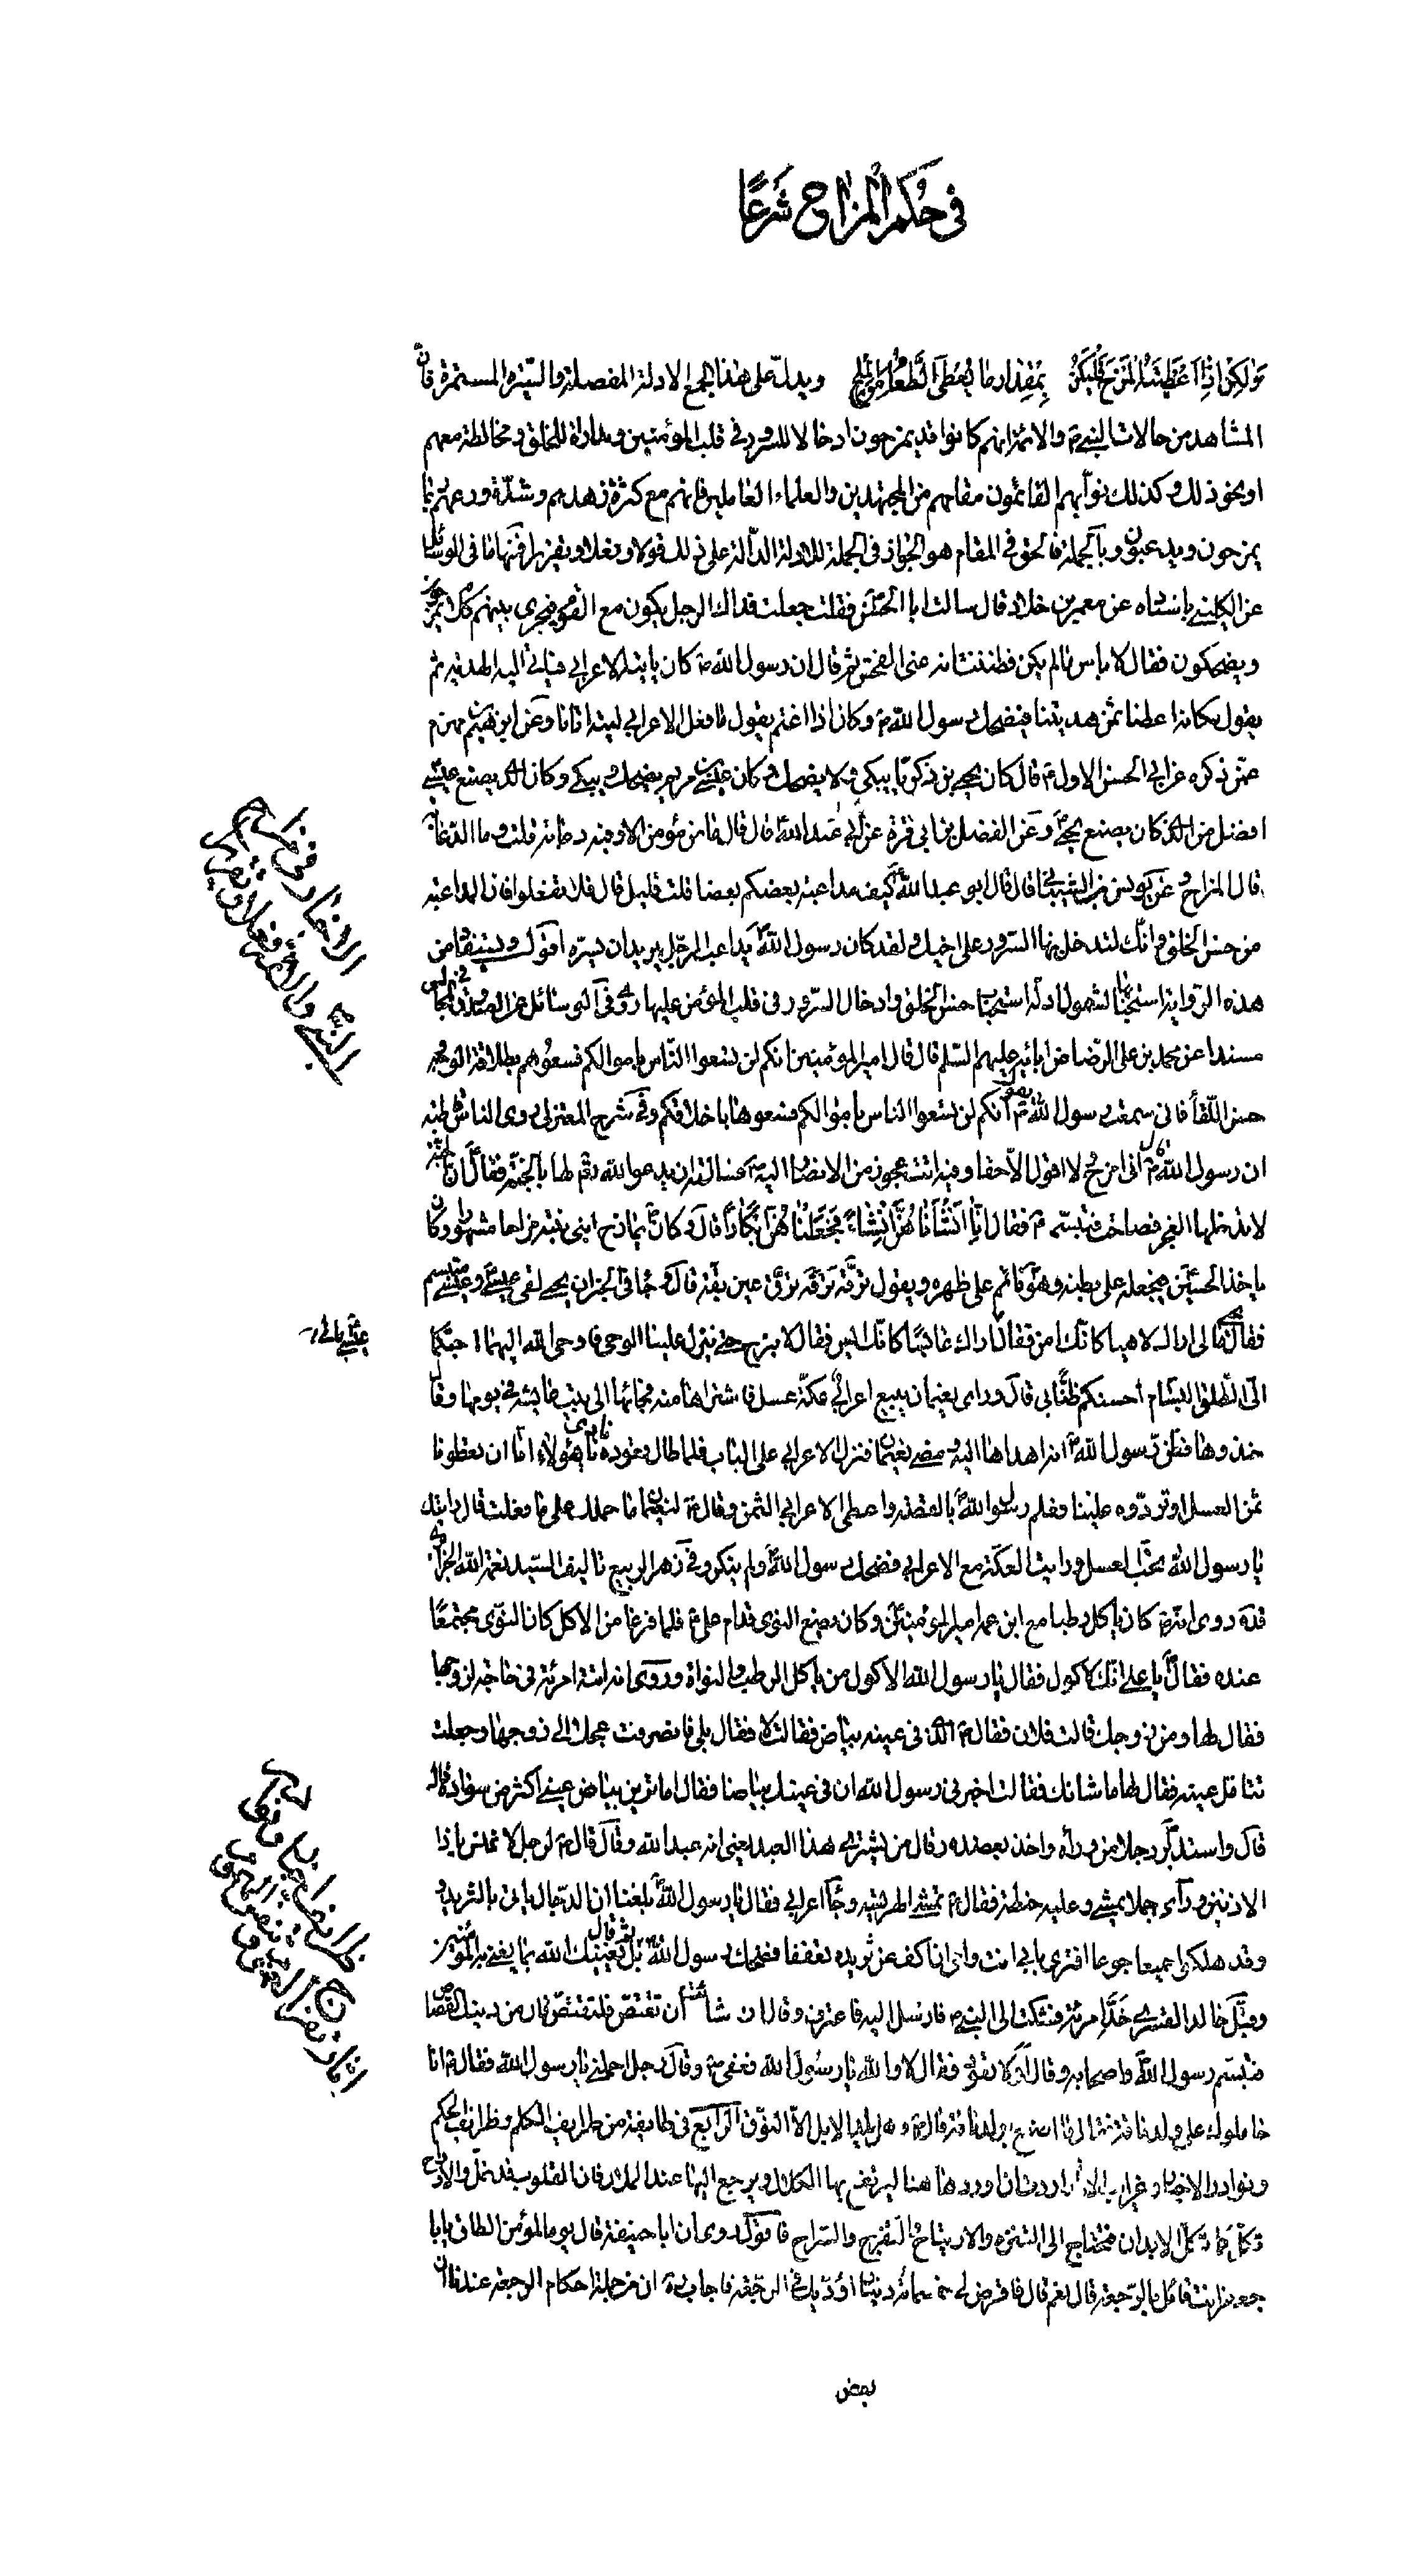 في حكم المزاح شرعا
ولكن اذا اعطيته المزح فليكن بمقدار ما يعطى الطعام من الملح ويدل على هذا الجمع الادلة المفصلة والسيرة المستمرة فان
المشاهد من حالات النبي ص والائمة انهم كانوا قد يمزحون ادخالا للسرور في قلب المؤمنين ومداراة للخلق ومخالطة معهم
او نحو ذلك وكذلك نوابهم القائمون مقامهم من المجتهدين والعلماء العاملين فانهم مع كثرة زهدهم وشدة ورعهم ربما
يمزحون ويداعبون وبالجملة فالحق في المقام هو الجواز في الجملة للادلة الدالة على ذلك قولا وفعلا وتقريرا فمنها ما في الوسائل
عن الكليني باسناده عن معمر بن خلاد قال سالت ابا الحسن فقلت جعلت فداك الرجل يكون مع القوم فيجري بينهم كلام يمزحون
ويضحكون فقال لا باس ما لم يكن فظننت انه عنى الفحش ثم قال ان رسول الله ص كان ياتيه الاعرابي فياتي اليه الهدية ثم
يقول مكانه اعطنا ثمن هديتنا فيضحك رسول الله ص وكان اذا اغتم يقول ما فعل الاعرابي ليته اتانا وعن ابرهيم بن مهزم
عمن ذكره عن ابي الحسن الاول ع قال كان يحيى بن زكريا يبكي ولا يضحك وكان عيسى بن مريم يضحك ويبكي وكان الذي يصنع عيسى
افضل من الذي كان يصنع يحيى وعن الفضل بن ابي قرة عن ابي عبد الله قال قال ما من مؤمن الا وفيه دعابة قلت وما الدعابة
قال المزاح وعن يونس بن الشيباني قال قال ابو عبد الله كيف مداعبة بعضكم بعضا قلت قليل قال فلا تفعلوا فان المداعبة
من حسن الخلق وانك لتدخل بها السرور على اخيك ولقد كان رسول الله ص يداعب الرجل يريد ان يسره اقول ويستفاد من
هذه الرواية استحبابها لشمول ادلة استحباب حسن الخلق وادخال السرور في قلب المؤمن عليها وفي الوسائل عن الصدوق في المجالس
مسندا عن محمد بن علي الرضا عن ابائه عليهم السلم قال قال امير المؤمنين انكم لن تسعوا الناس باموالكم فسعوهم بطلاقة الوجه
حسن اللقاء فاني سمعت رسول الله ص يقول انكم لن تسعوا الناس باموالكم فسعوهم باخلاقكم وفي شرح المعتزلي روى الناس قاطبة
ان رسول الله ص قال اني امزح ولا اقول الا حقا وفيه اتت عجوز من الانصار اليه ص فسالته ان يدعو الله تع لها بالجنة فقال ان الجنة
لا تدخلها العجز فصاحت فتبسم ص فقال انا انشاناهن انشاء فجعلناهن ابكارا قال وكان يمازح ابني بنته مزاحا مشهورا وكان
ياخذ الحسين فيجعله على بطنه وهو نائم على ظهره ويقول ترقه ترقه عين بقه قال وجاء في الخبر ان يحيى لقى عيسى وعيسى متبسم
فقال يحيى مالي اراك لاهيا كانك امن فقال مالي اراك عابسا كانك ايس فقال لا نبرح حتى ينزل علينا الوحي فاوحى الله اليهما احبكما
الي الطلق البسام احسنكم ظنا بي قال وراى نعيمان يبيع اعرابي عكة عسل فاشتراها منه فجاء بها الى بيت عايشة في يومها وقال
خذوها فظن رسول الله ص انه اهداها اليه ومضى نعيمان فنزل الاعرابي على الباب فلما طال قعوده نادى يا هؤلاء اما ان تعطونا
ثمن العسل او تردوه علينا فعلم رسول الله ص بالقصة واعطى الاعرابي الثمن وقال لنعيمان ما حملك على ما فعلت قال رايتك
يا رسول الله تحب العسل ورايت العكة مع الاعرابي فضحك رسول الله ص ولم ينكر وفي زهر الربيع تاليف السيد نعمة الله الجزائري
قده روى انه ص كان ياكل رطبا مع ابن عمه امير المؤمنين وكان يضع النوى قدام علي ع فلما فرغا من الاكل كان النوى مجتمعا
عنده فقال يا علي انك لاكول فقال يا رسول الله الاكول من ياكل الرطب والنواة وروى انه اتته امرئة في حاجة لزوجها
فقال لها ومن زوجك قالت فلان فقال ص الذي في عينه بياض فقالت لا فقال بلى فانصرفت عجلا الى زوجها وجعلت
تتامل عينه فقال لها ما شانك فقالت اخبرني رسول الله ان في عينك بياضا فقال اما ترين بياض عيني اكثر من سوادها
قال واستدبر رجلا من وراء واخذ بعضده وقال من يشتري هذا العبد يعني انه عبد الله وقال قال ص لرجل لا تنس يا ذا
الاذنين وراى جملا يمشي وعليه حنطة فقال ص تمشي الهريسة وجاء اعرابي فقال يا رسول الله بلغنا ان الدجال ياتي بالثريد
وقد هلكوا جميعا جوعا افترى بابي انت وامي ان اكف عن ثريده تعففا فضحك رسول الله ص ثم قال بل يغنيك الله بما يغني به المؤمنين
وقبل خالد القسري خد امرئة فشكت الى النبي ص فارسل اليه فاعترف وقال ان شائت ان تقتص فلتقتص اومن دينك القصاص
فتبسم رسول الله ص واصحابه وقال اولا تعود فقال لا والله يا رسول الله فعفى عنه وقال رجل احملني يا رسول الله فقال ص انا
حاملوك على ولد ناقة فقال ما اصنع بولد ناقة قال ص وهل يلد الابل الا النوق الرابع في طايفة من طرايف الكلم وظرايف الحكم
ونوادر الاخبار وغرايب الاثار اردت ان اوردها هنا ليرتفع بها الكلال ويرجع اليها عند الملال فان القلوب قد تمل والارواح
تكل كما تكل الابدان فتحتاج الى التنزه والارتياح والتفريح والسراح فاقول روى ان ابا حنيفة قال يوما لمؤمن الطاق يا با
جعفر انت قائل بالرجعة قال نعم قال فاقرض لي خمسمائة دينار اؤديك في الرجعة فاجاب ان من جملة احكام الرجعة عندنا ان
بعض
الاخبار في مزاح
النبي والائمة فعلا وتقريرا